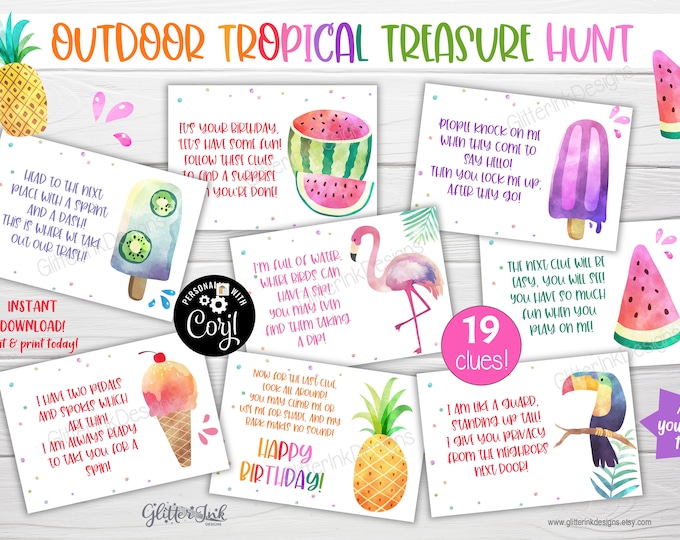 OUTDOOR TROPICAL TREASURE HUNT
IT'S YOUR BIRTHDAY,
LET'S HAVE SOME FUN!
FOLLOW THESE CLUES
TO FIND A SURPRISE
YOU'RE DONE!
PEOPLE KNOCK ON ME
WHEN THEY COME TO
SAY HELLO!
THEN YOU LOCK ME UP,
AFTER THEY GO!
HEAD TO THE NEXT
PLACE WITH A SPRINT
AND A DASH!
THIS IS WHERE WE TAKE
OUT OUR TRASH!
I'M FULL OF WATER,
WHERE BIRDS CAN
HAVE A SIP!
YOU MAY EVEN
FIND THEM TAKING
A DIP!
THE NEXT CLUE WILL BE
EASY, YOU WILL SEE!
YOU HAVE SO MUCH
FUN WHEN YOU
PLAY ON ME!
INSTANT
DOWNLOAD!
& print today!
PERSONALIZE WITH
Corjl
19
clues!
I HAVE TWO PEDALS
AND SPOKES WHICH
ARE THIN!
I AM ALWAYS READY
TO TAKE YOU FOR A
SPIN!
NOW FOR THE LAST CLUE,
LOOK ALL AROUND!
YOU MAY CLIMB ME OR
USE ME FOR SHADE, AND MY
BARK MAKES NO SOUND!
HAPPY
BIRTHDAY!
I AM LIKE A GUARD,
STANDING UP TALL!
I GIVE YOU PRIVACY
FROM THE NEIGHBORS
NEXT DOOR!
Glitter Ink
DESIGNS
www.glitterinkdesigns.etsy.com